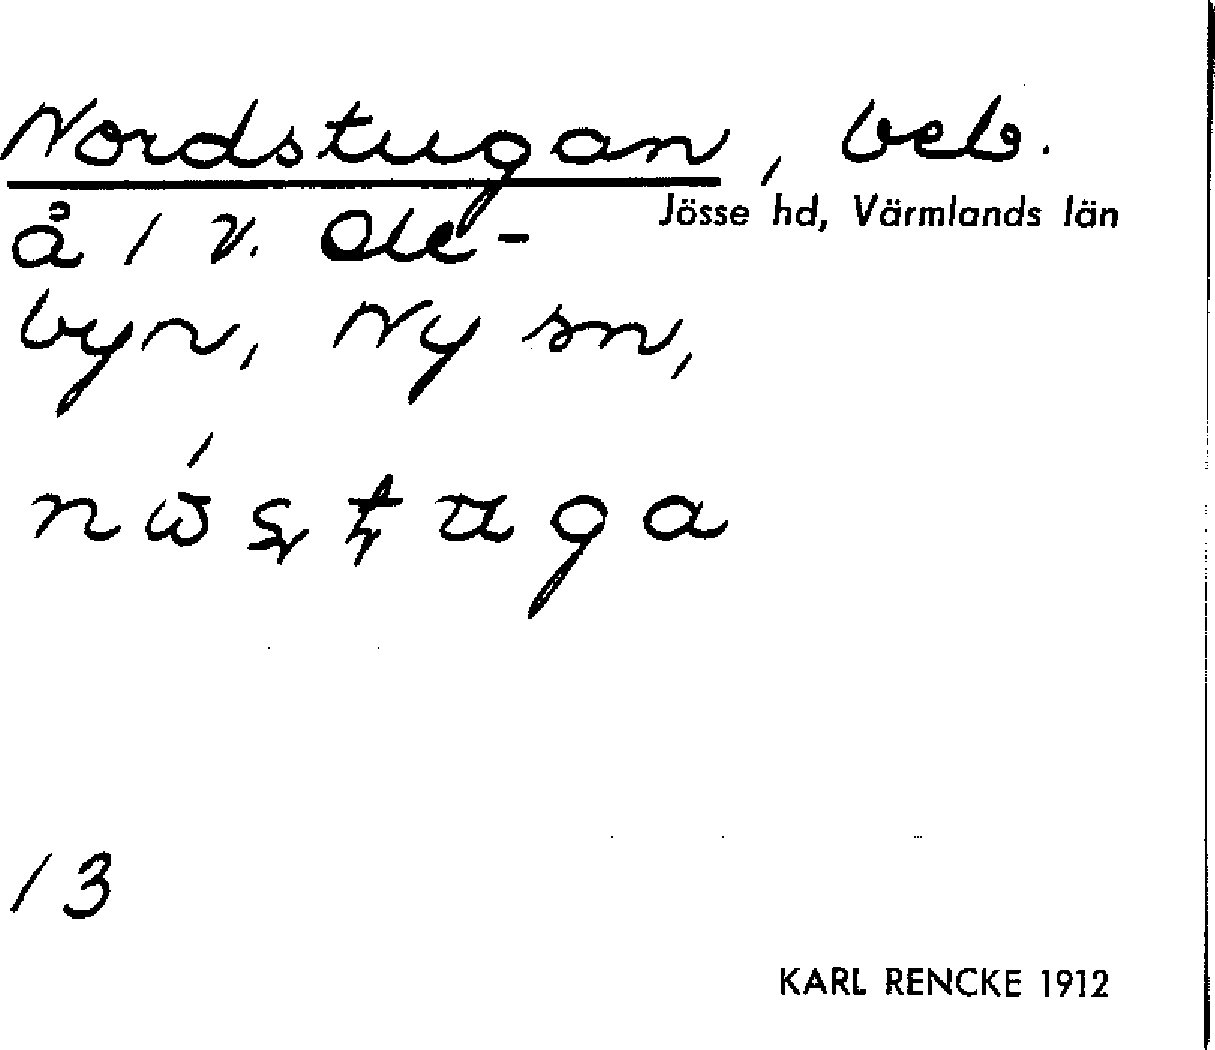 Nordstugan, beb.
Jösse hd, Värmlands län
å 1 v. Ole-
byn, Ny sn,
13
KARL RENCKE 1912